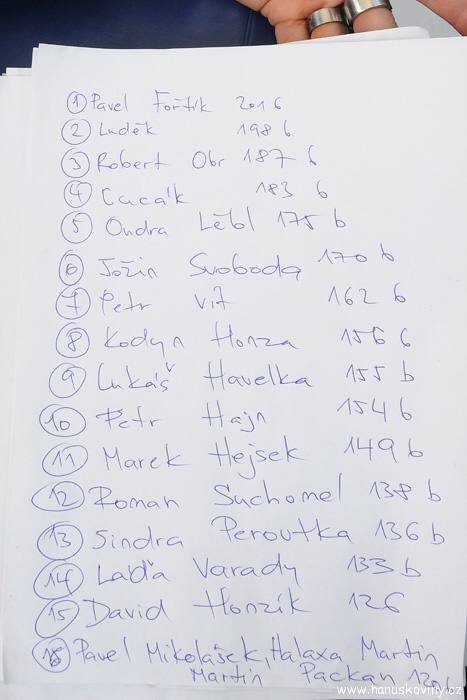 1 Pavel Fořtík 201 b
2 Luděk 198 b
3 Robert Obr 187 b
4 Cucák 183 b
5 Ondra Lébl 175 b
6 Jožin Svoboda 170 b
7 Petr Vít 162 b
8 Kodyn Honza 156 b
9 Lukáš Havelka 155 b
10 Petr Hajn 154 b
11 Marek Hejsek 149 b
12 Roman Suchomel 138 b
13 Jindra Peroutka 136 b
14 Laďa Varady 133 b
15 David Honzík 126
16 Pavel Mikolášek, Halaxa Martin
Martin Packan 120
www.hanuskoviny.cz